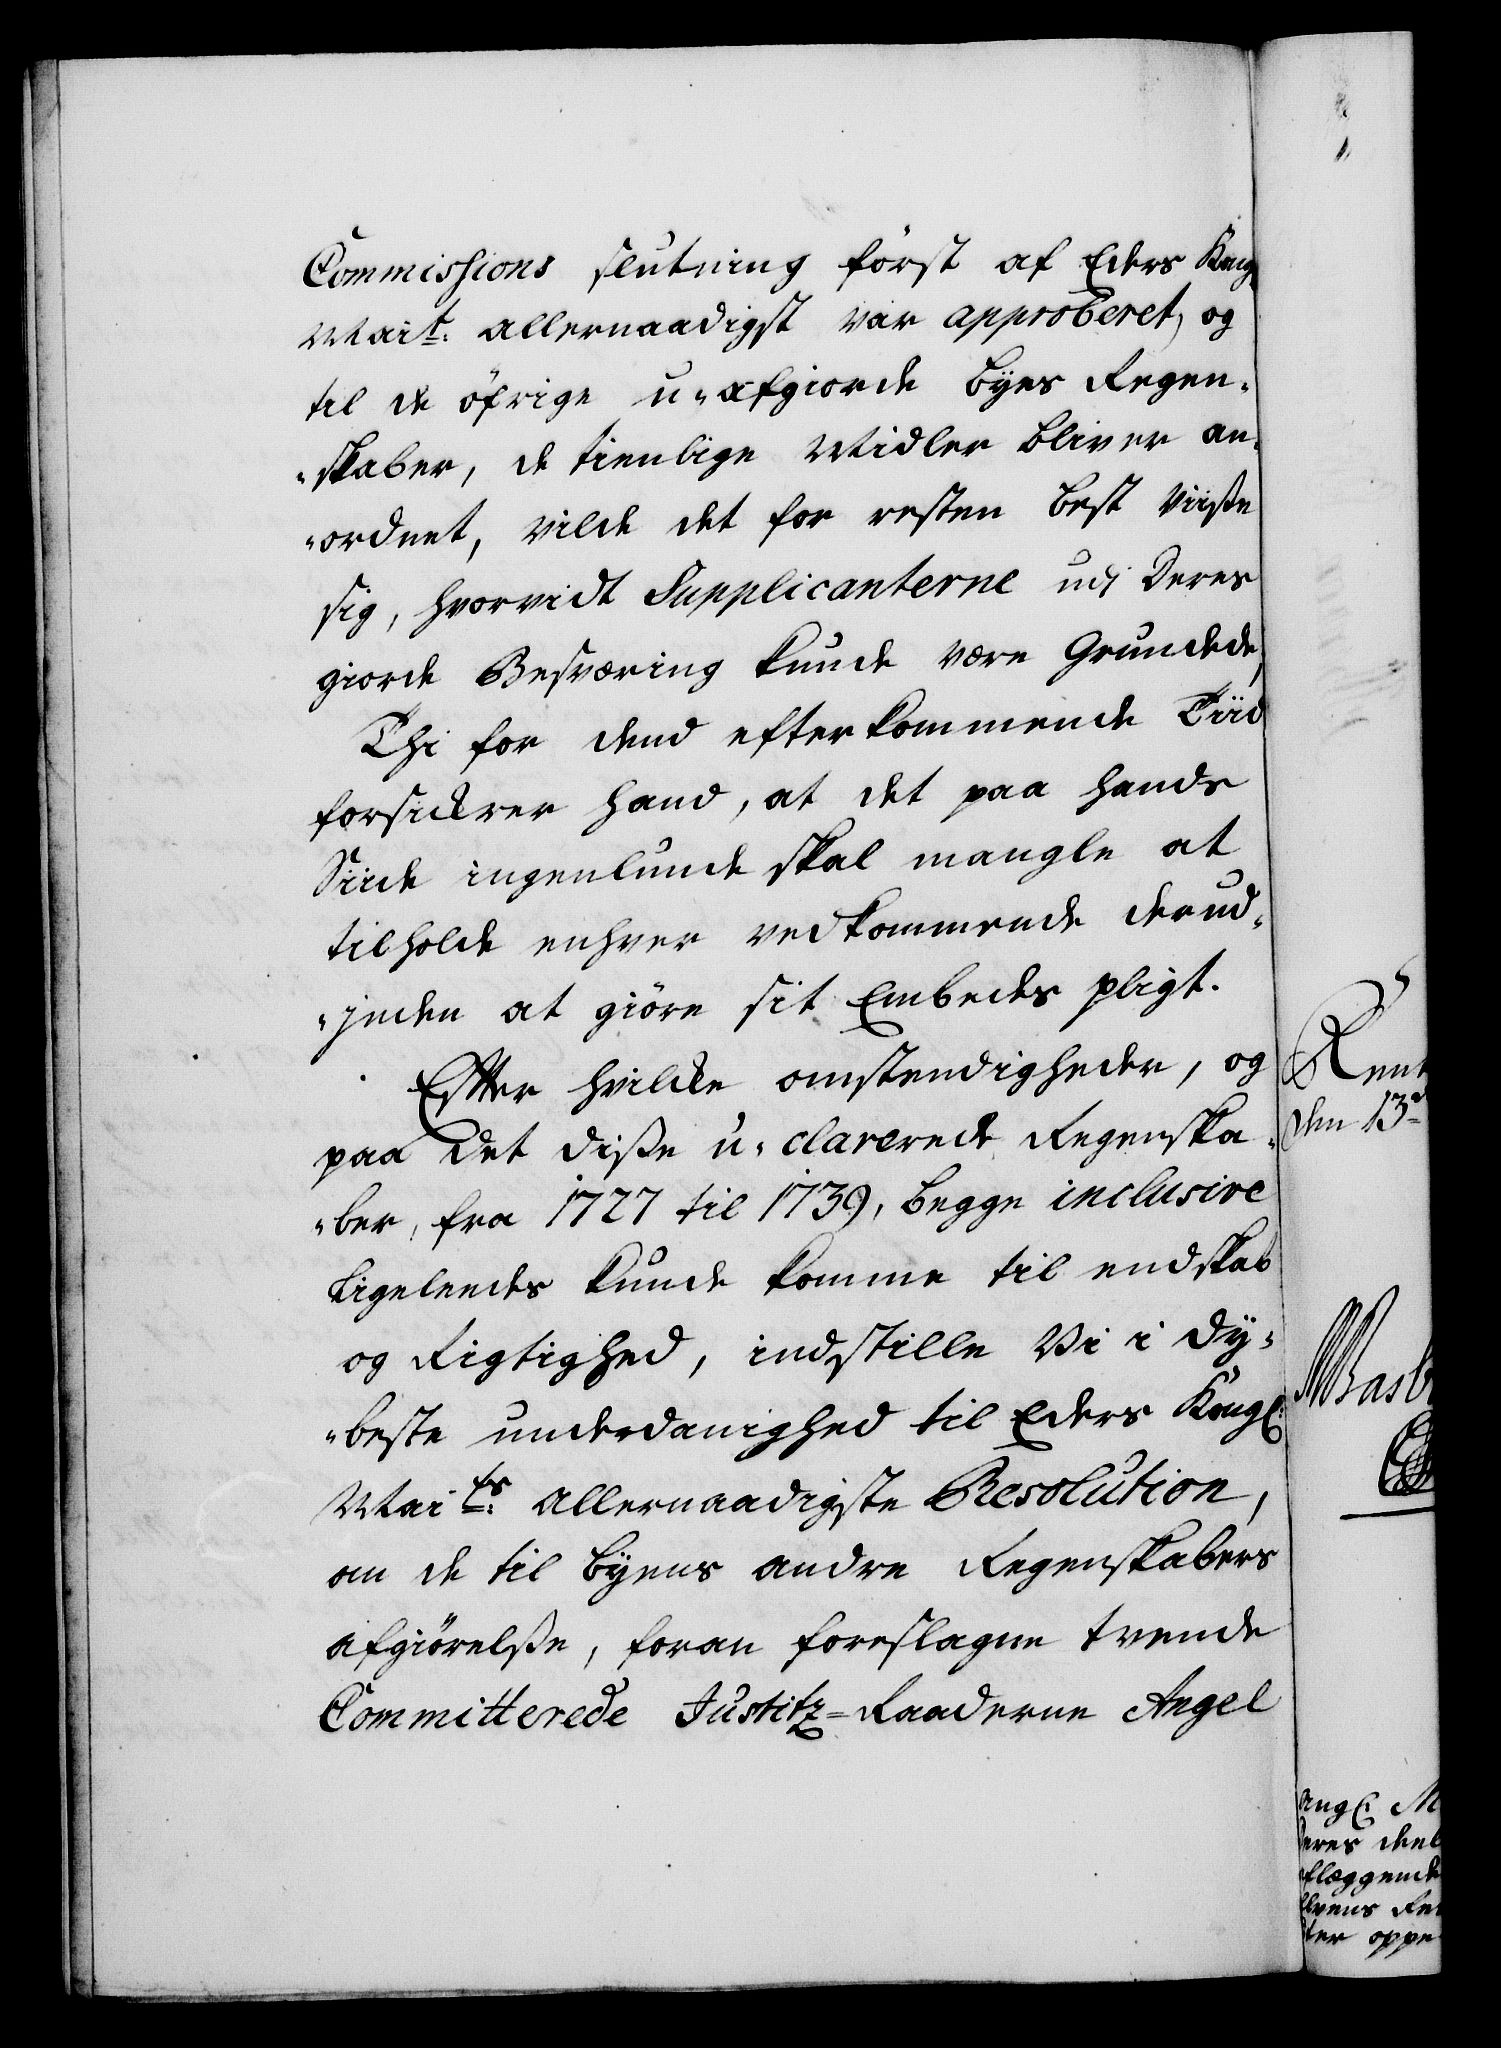 Commissions slutning först af Eders Kong
Mait: allernaadigst var approberet, og
til de öfrige u-afgiorde Byes Regen-
-skaber, de tienlige Midler bliver an-
-ordnet, vilde det for resten best viiße
sig, hvorvidt Supplicanterne udj deres
giorde Besværing kunde være Grundede,
Thi for dend efterkommende Tiid
forsickrer hand, at det paa hands
Siide ingenlunde skal mangle at
tilholde enhver vedkommende derud-
-jnden at giöre sit Embedes pligt.
Efter hvilcke omstendigheder, og
paa det diße u-clarerede Regenska-
-ber, fra 1727 til 1739, begge inclusive
Ligeleedes kunde komme til endskab
og Rigtighed, indstille Vi i dy-
-beste underdanighed til Eders Kongl:
Maits: allernaadigste Resolution,
om de til Byens andre Regenskabers
afgiörelße, foran foreslagne tvende
Committerede Justitz-Raaderne Angel
Rent
den 13d
angl: M
deres deel
flæggende
ter oppe